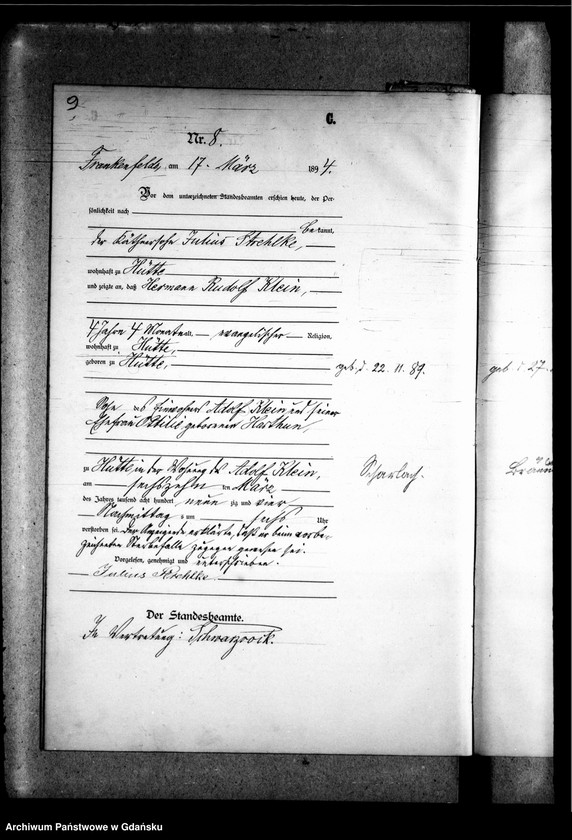 9
C.
Nr. 8.
Frankenfelde, am 17. März 1894.
Vor dem unterzeichneten Standesbeamten erschien heute, der Per-
sönlichkeit nach
bekannt,
der Käthnersohn Julius Strehlke,
wohnhaft zu Hütte
und zeigte an, daß Hermann Rudolf Klein,
4 Jahre 4 Monate alt, evangelischer Religion,
wohnhaft zu Hütte,
geboren zu Hütte,
geb. d. 22. 11. 89.
geb. d. 27.
Sohn des Einwohners Adolf Klein und seiner
Ehefrau Ottilie geborenen Harthun,
zu Hütte in der Wohnung des Adolf Klein,
Scharlach.
am sechszehnten ten März
des Jahres tausend acht hundert neun zig und vier
Nachmittag s um sechs Uhr
verstorben sei. Der Anzeigende erklärte, daß er beim vorbe-
zeichneten Sterbefalle zugegen gewesen sei.
Vorgelesen, genehmigt und unterschrieben.
Julius Strehlke
Der Standesbeamte.
In Vertretung:
Archiwum Państwowe w Gdańsku